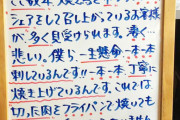 て数本 焼とりを
シェアして召し上がっているお客様
が多く見受けられます。凄く…
悲しい。僕ら、一生懸命一本一本
刺しているんです!!一本一本丁寧に
焼き上げているんです。これでは
切った肉をフライパンで焼いても